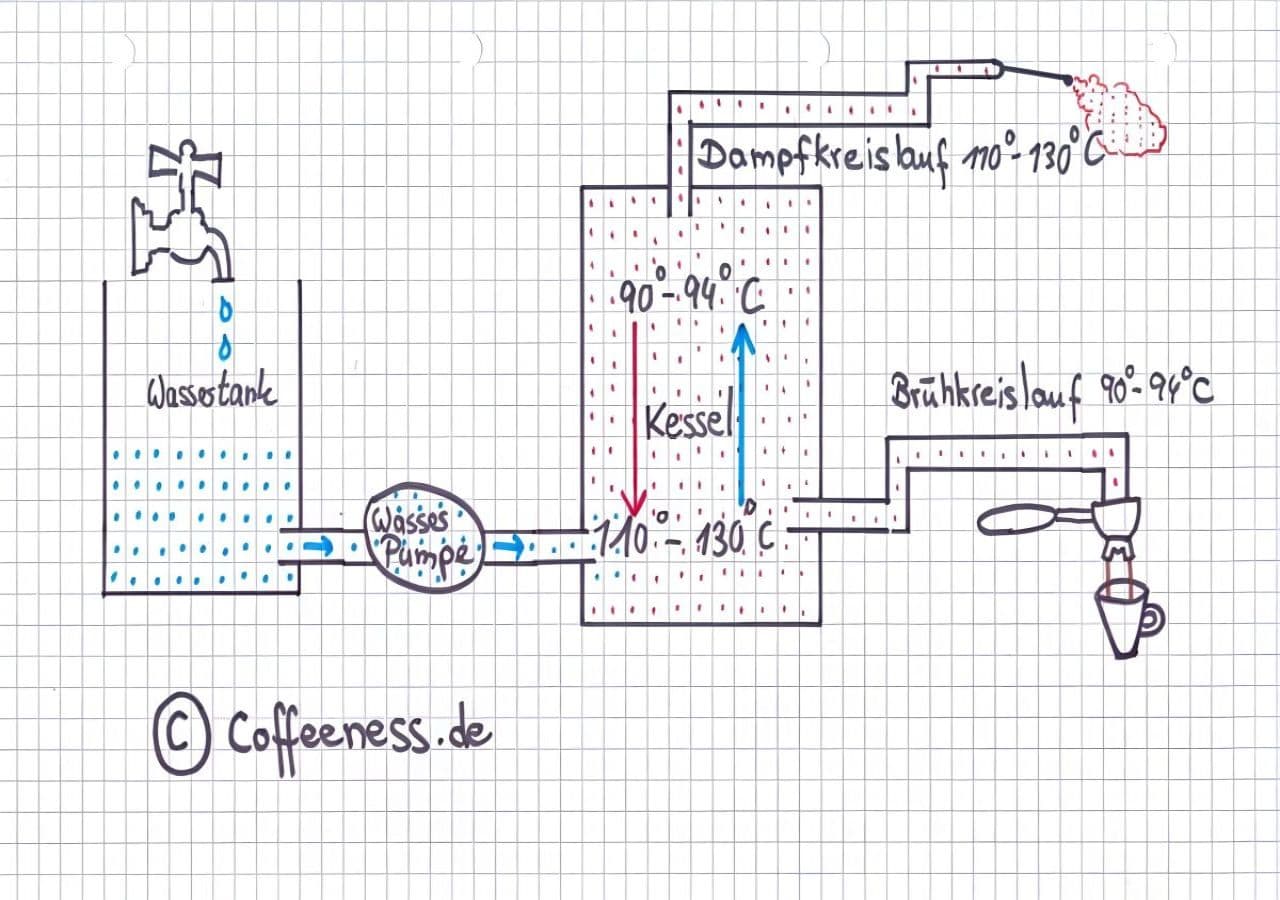 Dampfkreislauf 110°-130°C
90°-94°C
Wassertank
Kessel
Brühkreislauf 90°-94°C
Wasser
Pumpe
110°- 130°C
© Coffeeness.de